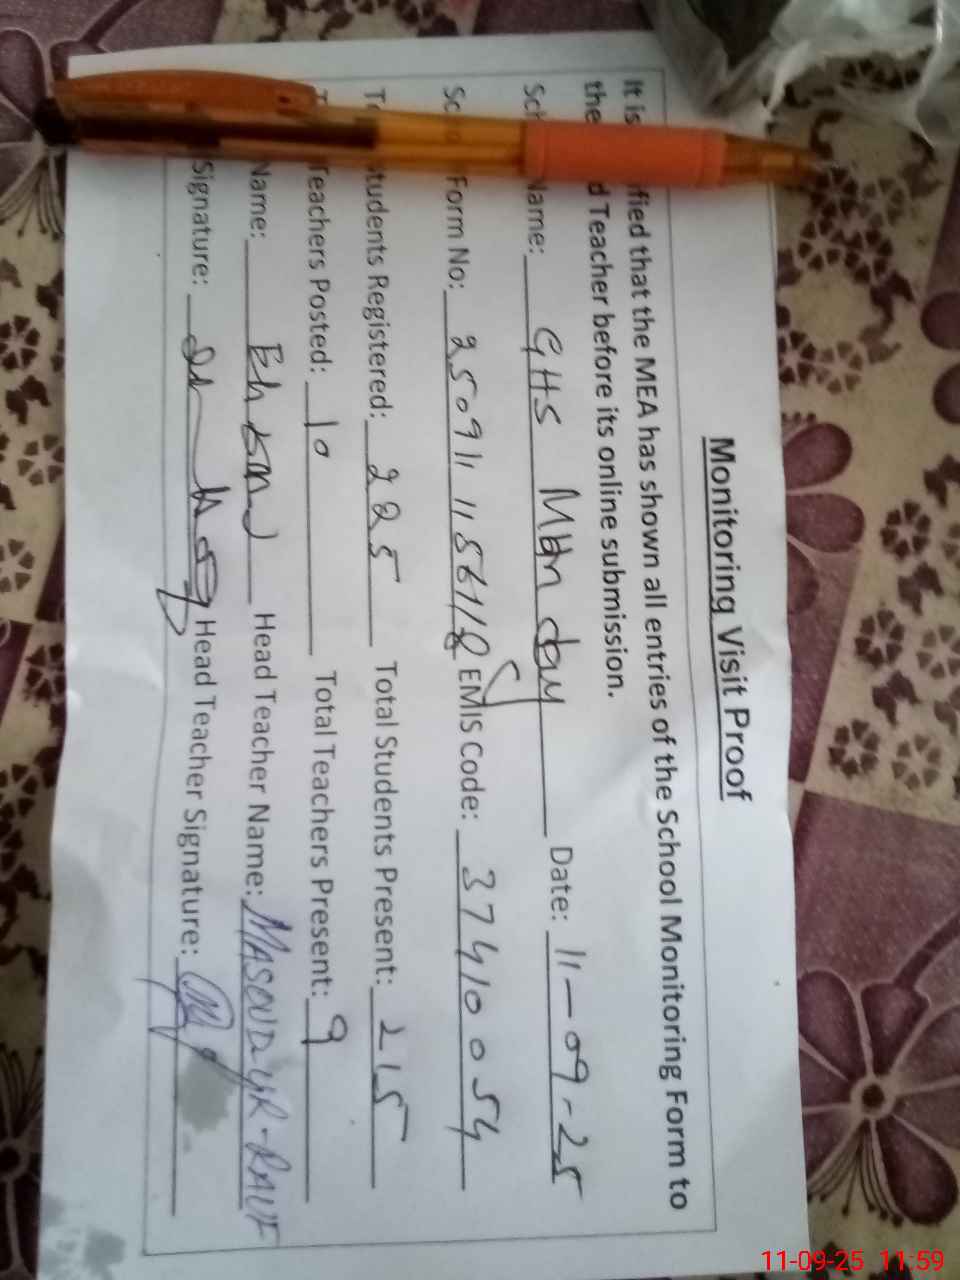 Monitoring Visit Proof
It is fied that the MEA has shown all entries of the School Monitoring Form to
the d Teacher before its online submission.
Name: GHS Date: 11-09-25
Form No: EMIS Code: 37410054
Students Registered: 225 Total Students Present: 215
Teachers Posted: 10 Total Teachers Present: 9
Name: Head Teacher Name: MASOUD-UR-RAUF
Signature: Head Teacher Signature:
11-09-25 11:59